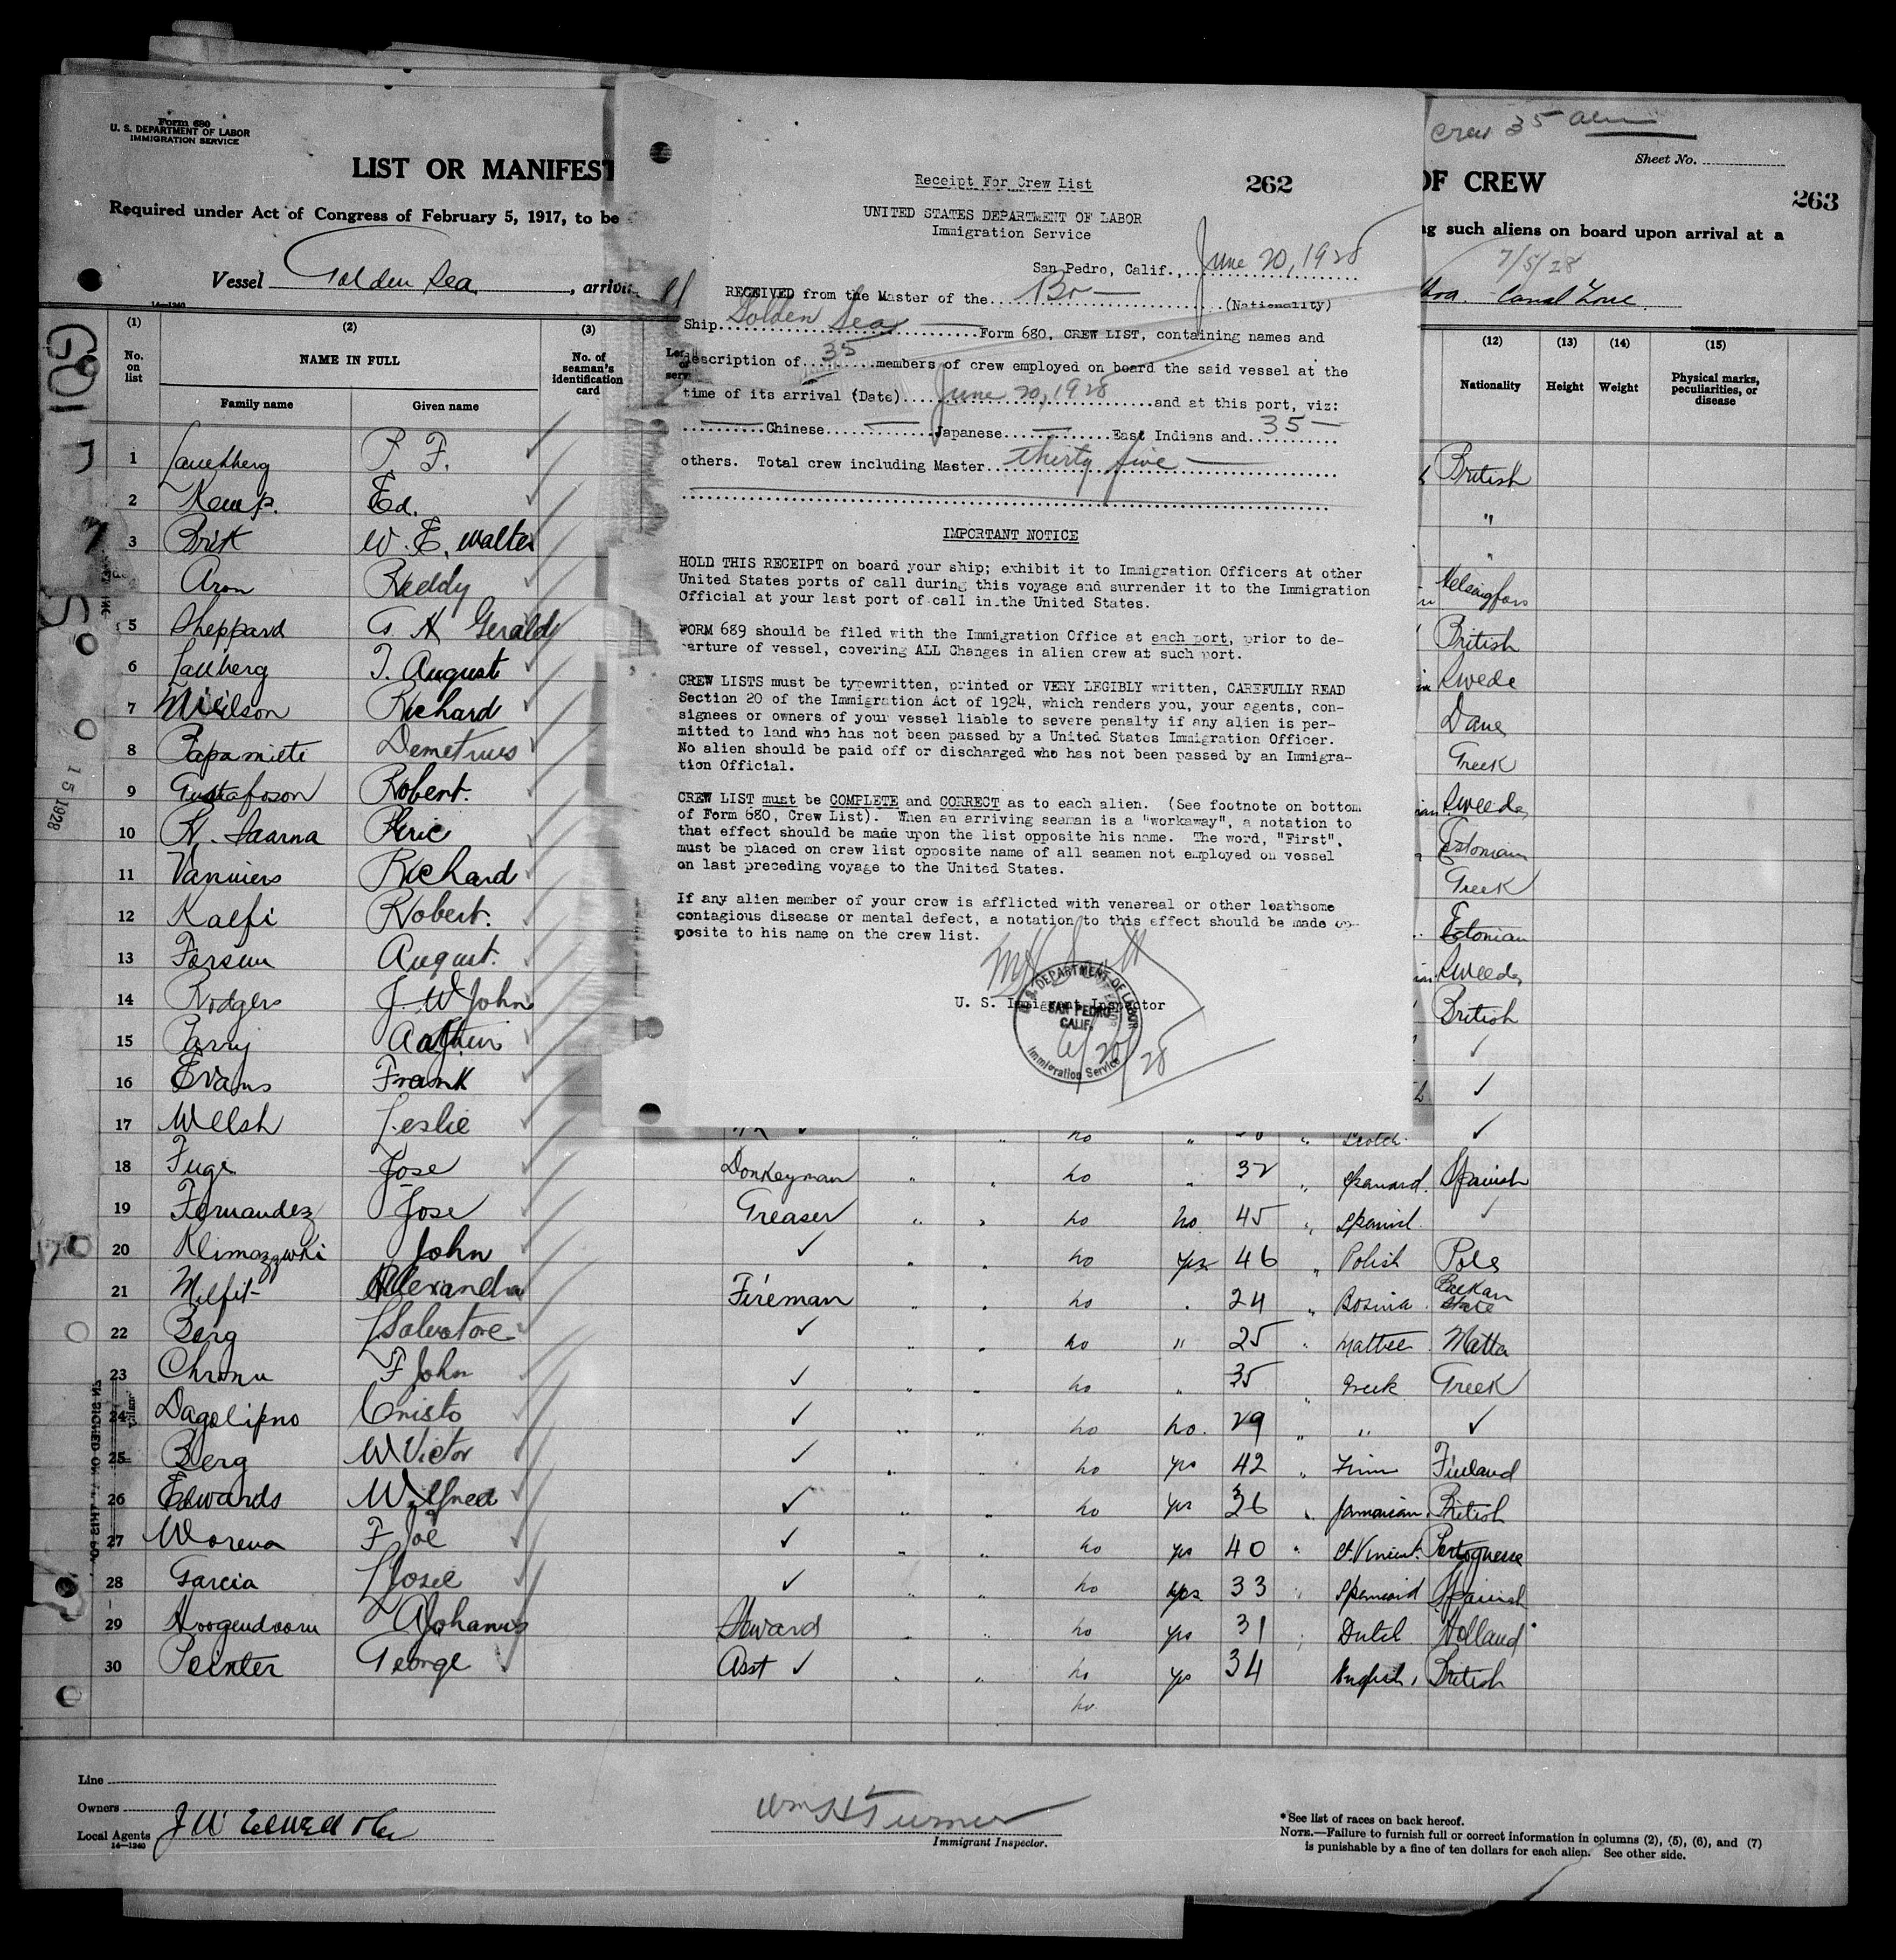 Form 680
U. S. DEPARTMENT OF LABOR
IMMIGRATION SERVICE
LIST OR MANIFEST
Required under Act of Congress of February 5, 1917, to be
Vessel Golden Sea, arriving
Crew 35
Sheet No.
OF CREW
263
such aliens on board upon arrival at a
7/5/28
Canal Zone
14-1240
Receipt For Crew List
262
UNITED STATES DEPARTMENT OF LABOR
Immigration Service
San Pedro, Calif., June 20, 1928
RECEIVED from the Master of the Br (Nationality)
Ship Golden Sea Form 680, CREW LIST, containing names and
description of 35 members of crew employed on board the said vessel at the
time of its arrival (Date) June 20, 1928 and at this port, viz:
Chinese Japanese East Indians and 35
others. Total crew including Master thirty five
IMPORTANT NOTICE
HOLD THIS RECEIPT on board your ship; exhibit it to Immigration Officers at other
United States ports of call during this voyage and surrender it to the Immigration
Official at your last port of call in the United States.
FORM 689 should be filed with the Immigration Office at each port, prior to de-
parture of vessel, covering ALL Changes in alien crew at such port.
CREW LISTS must be typewritten, printed or VERY LEGIBLY written, CAREFULLY READ
Section 20 of the Immigration Act of 1924, which renders you, your agents, con-
signees or owners of your vessel liable to severe penalty if any alien is per-
mitted to land who has not been passed by a United States Immigration Officer.
No alien should be paid off or discharged who has not been passed by an Immigra-
tion Official.
CREW LIST must be COMPLETE and CORRECT as to each alien. (See footnote on bottom
of Form 680, Crew List). When an arriving seaman is a "workaway", a notation to
that effect should be made upon the list opposite his name. The word, "First",
must be placed on crew list opposite name of all seamen not employed on vessel
on last preceding voyage to the United States.
If any alien member of your crew is afflicted with venereal or other loathsome
contagious disease or mental defect, a notation to this effect should be made op-
posite to his name on the crew list.
U. S. Immigrant Inspector
U.S. DEPARTMENT OF LABOR
SAN PEDRO
CALIF.
Immigration Service
6/20/28
(1) (2) (3) (12) (13) (14) (15)
No. on list
NAME IN FULL
No. of seaman's identification card
Nationality
Height
Weight
Physical marks, peculiarities, or disease
Family name
Given name
1 P. F. British
2 Kemp. Ed. "
3 Brit W. E. Walter "
Aron Reddy Helsingfors
5 Sheppard G. H Gerald British
6 T. August Swede
7 Richard Dane
8 Papamiete Demetrius Greek
9 Gustafoson Robert. Sweeds
10 K. Saarna Estonian
11 Richard Greek
12 Kalfi Robert. Estonian
13 August. Sweeds
14 Rodgers J. W John British
15 Parry Arthur ✓
16 Evans Frank ✓
17 Welsh Leslie no Scotch ✓
18 Fuge Jose Donkeyman no 32 Spaniard. Spanish
19 Fernandez Jose Greaser no no 45 Spanish ✓
20 John ✓ no yes 46 Polish Pole
21 Alexander Fireman no 24 Bosnia Balkan State
22 Borg Salvatore ✓ no " 25 Maltee Malta
23 F John ✓ no " 35 Greek Greek
24 Cristo ✓ no no. 29 " ✓
25 Berg W Victor ✓ no yes 42 Finn Finland
26 Edwards Wilfred ✓ no yes 36 Jamaican British
27 Morena F Joe ✓ no yes 40 St. Vincent. Portoguese
28 Garcia Josee ✓ no yes 33 Spaniard Spanish
29 Hoogendoorn A Johannis Steward no yes 31 Dutch Holland
30 Pointer George Asst ✓ no yes 34 English, British
no
15 1928
Line
Owners
Local Agents
14-1240
Wm H Turner
Immigrant Inspector.
*See list of races on back hereof.
NOTE.—Failure to furnish full or correct information in columns (2), (5), (6), and (7)
is punishable by a fine of ten dollars for each alien. See other side.